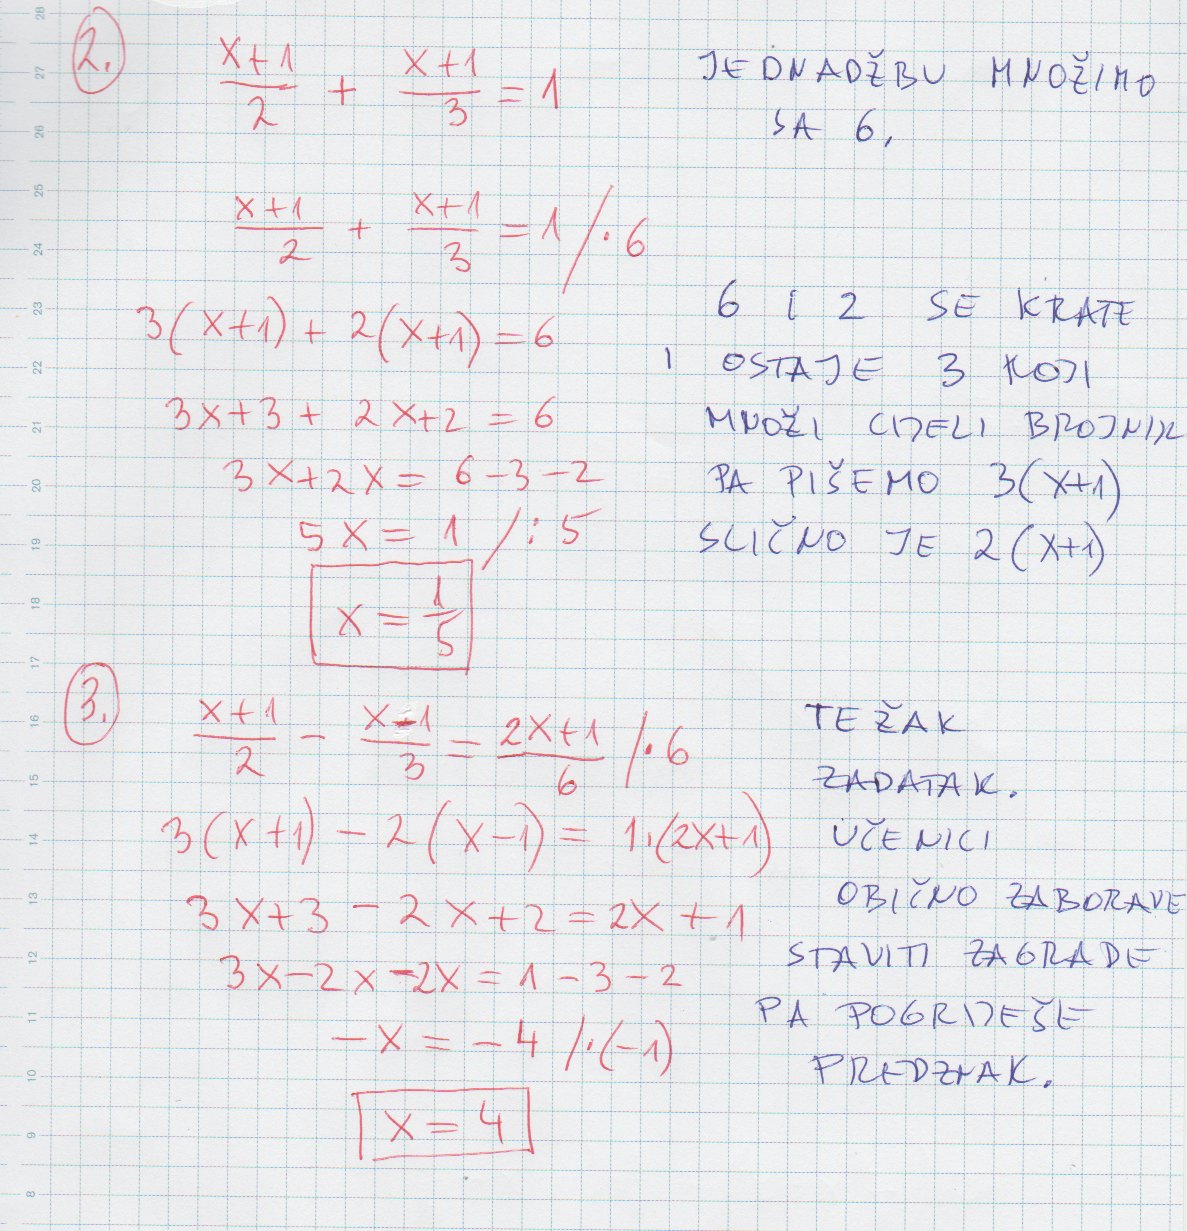 2.
x+1/2 + x+1/3 = 1
JEDNADŽBU MNOŽIMO
SA 6.
x+1/2 + x+1/3 = 1 / · 6
3(x+1) + 2(x+1) = 6
6 I 2 SE KRATE
I OSTAJE 3 KOJI
3x+3 + 2x+2 = 6
MNOŽI CIJELI BROJNIK
3x+2x = 6-3-2
PA PIŠEMO 3(x+1)
5x = 1 / : 5
SLIČNO JE 2(x+1)
x = 1/5
3.
x+1/2 - x-1/3 = 2x+1/6 / · 6
TEŽAK
ZADATAK.
3(x+1) - 2(x-1) = 1·(2x+1)
UČENICI
OBIČNO ZABORAVE
3x+3 - 2x+2 = 2x+1
STAVITI ZAGRADE
3x-2x-2x = 1-3-2
PA POGRIJEŠE
-x = -4 / · (-1)
PREDZNAK.
x = 4
28
27
26
25
24
23
22
21
20
19
18
17
16
15
14
13
12
11
10
9
8